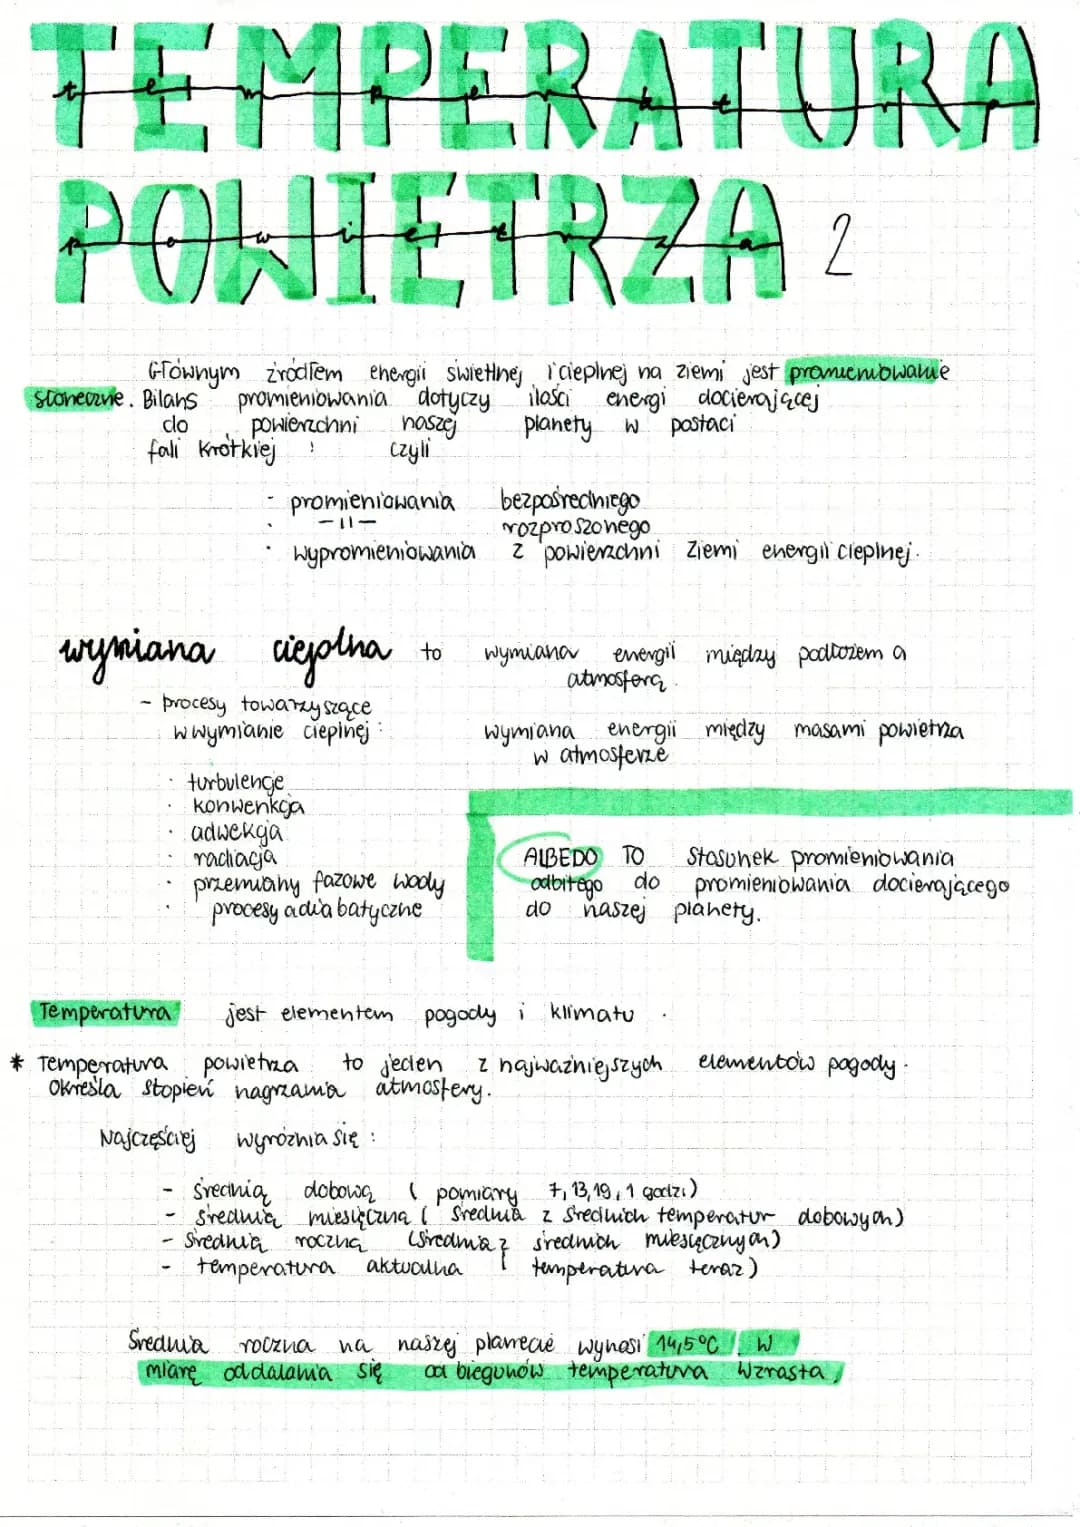 TEMPERATURA
temperatura
POWIETRZA 2
powietrza
Głównym źródłem energii świetlnej i cieplnej na ziemi jest promieniowanie
słoneczne. Bilans promieniowania dotyczy ilości energi docierającej
do powierzchni naszej planety w postaci
fali krótkiej : czyli
- promieniowania bezpośredniego
· -11- rozproszonego
· wypromieniowania z powierzchni Ziemi energii cieplnej.
wymiana cieplna to wymiana energii między podłożem a
atmosferą.
- procesy towarzyszące
w wymianie cieplnej :
wymiana energii między masami powietrza
w atmosferze
· turbulencje
· konwenkcja
· adwekcja
· radiacja
· przemiany fazowe wody
· procesy adiabatyczne
ALBEDO TO stosunek promieniowania
odbitego do promieniowania docierającego
do naszej planety.
Temperatura jest elementem pogody i klimatu .
* Temperatura powietrza to jeden z najważniejszych elementów pogody.
Określa stopień nagrzania atmosfery.
Najczęściej wyróżnia się :
- średnią dobową ( pomiary 7, 13, 19, 1 godz.)
- średnią miesięczną ( średnia z średnich temperatur dobowych)
- średnią roczną (średnia z średnich miesięcznych)
- temperatura aktualna ( temperatura teraz)
Średnia roczna na naszej planecie wynosi 14,5°C. W
miarę oddalania się od biegunów temperatura wzrasta.